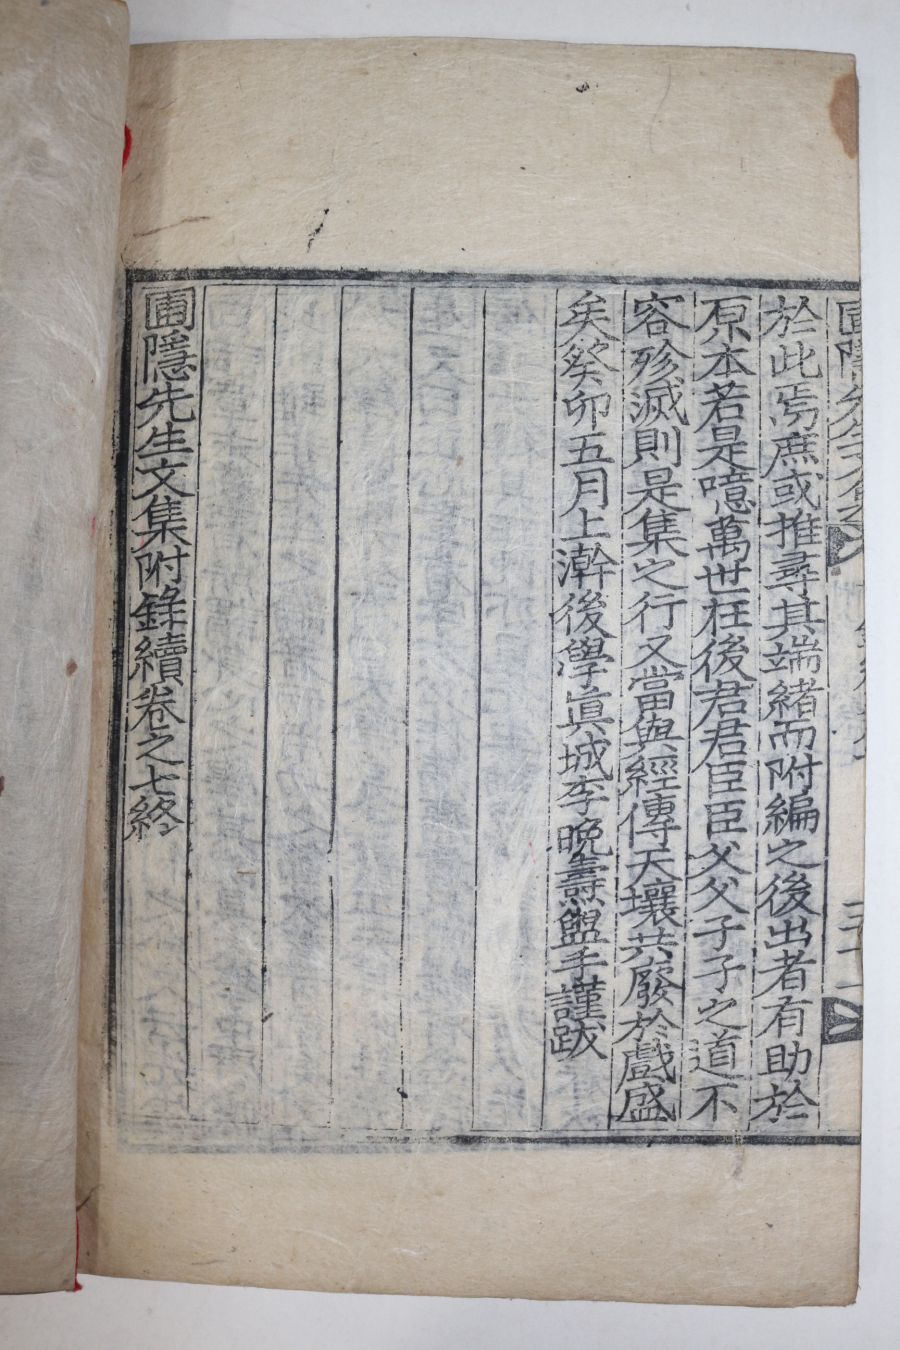 圃隱先生文集
於此焉庶或推尋其端緖而附編之後出者有助於
原本若是噫萬世在後君君臣臣父父子子之道不
容殄滅則是集之行又當與經傳天壤共廢於戱盛
矣癸卯五月上澣後學眞城李晩燾盥手謹跋
圃隱先生文集附錄續卷之七終